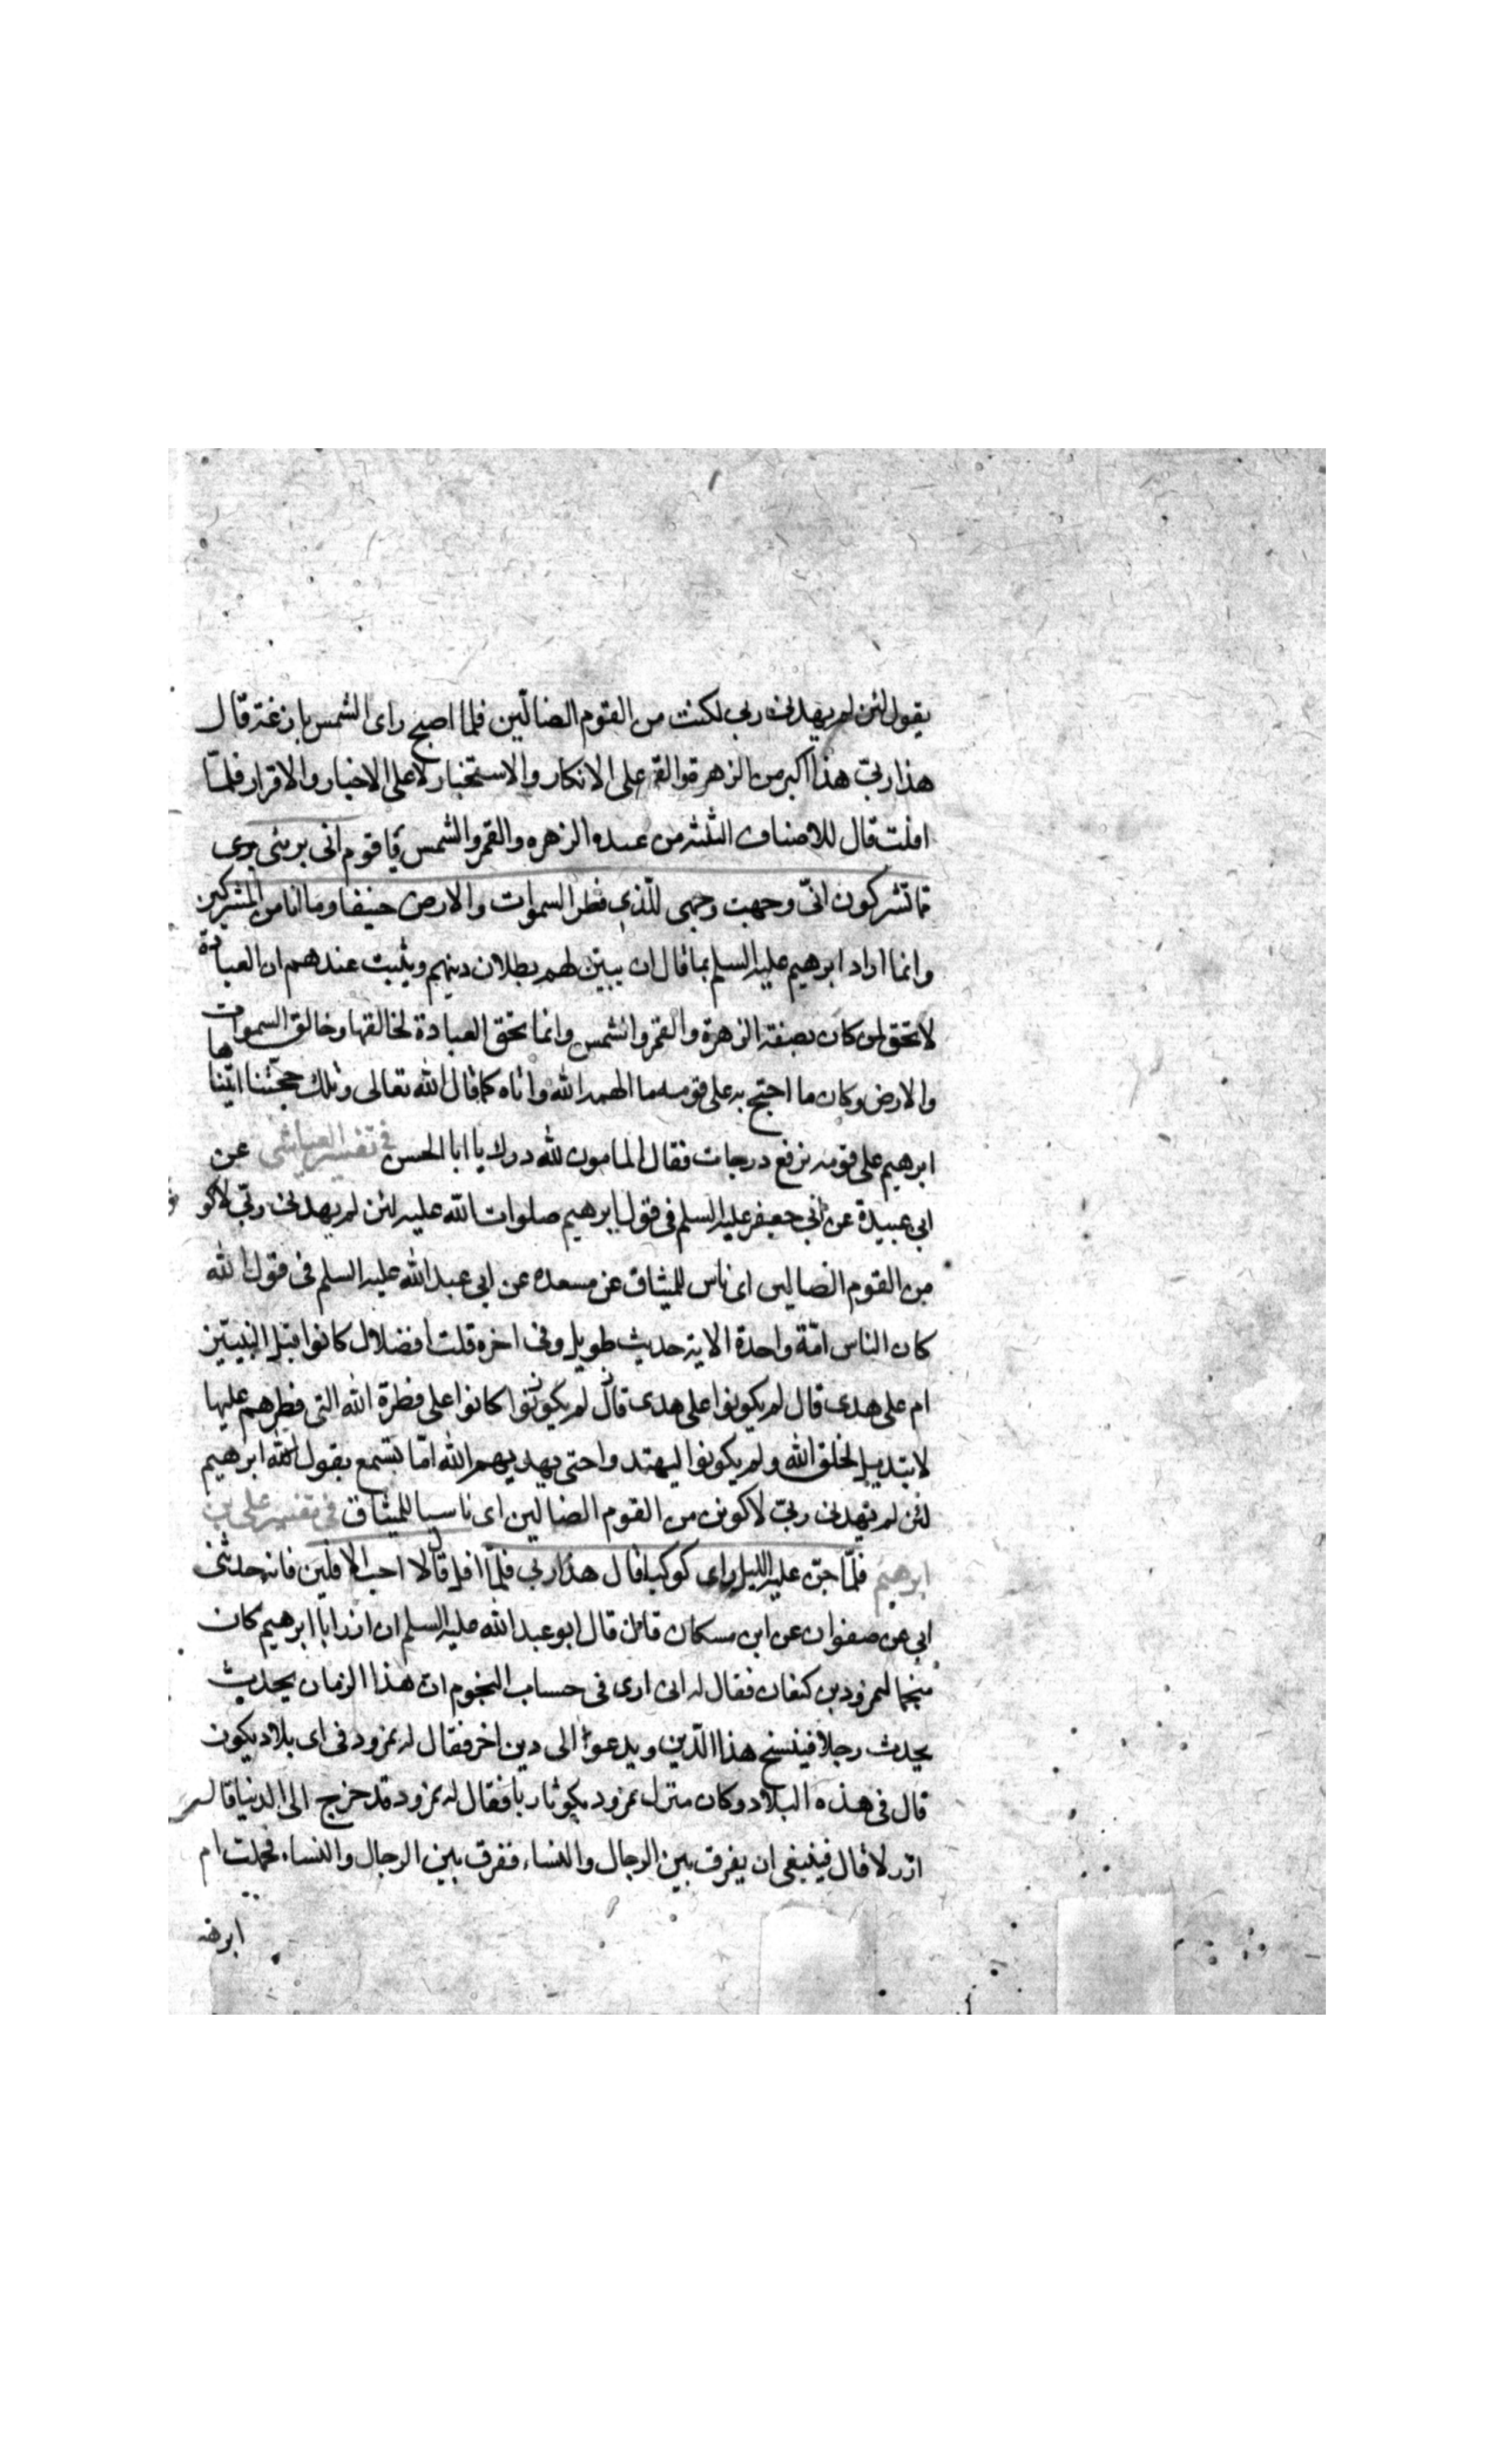 يقول لئن لم يهدنى ربى لكنت من القوم الضالّين فلما اصبح راى الشمس بازغة قال
هذا ربّى هذا اكبر من الزهرة والقمر على الانكار والاستخبار لا على الاخبار والاقرار فلمّا
افلت قال للاصناف الثلثة من عبده الزهره والقمر والشمس يا قوم انى برئ
مما تشركون انّى وجهت وجهى للّذى فطر السموات والارض حنيفا وما انا من المشركين
وانما اراد ابرهيم عليه السلم بما قال ان يبيّن لهم بطلان دينهم ويثبت عندهم ان العبادة
لا تحق لمن كان بصفة الزهرة والقمر والشمس وانما تحق العبادة لخالقها وخالق السموات
والارض وكان ما احتج به على قومه مما الهمه الله واتاه كما قال الله تعالى وتلك حجّتنا اتيناها
ابرهيم على قومه نرفع درجات فقال المامون لله درك يا ابا الحسن فى تفسير العياشى عن
ابى عبيدة عن ابى جعفر عليه السلم فى قول ابرهيم صلوات الله عليه لئن لم يهدنى ربّى لاكو
من القوم الضالين اى ناس للميثاق عن مسعده عن ابى عبد الله عليه السلم فى قول الله
كان الناس امّة واحدة الاية حديث طويل وفى اخره قلت افضلال كانوا قبل النبيّين
ام على هدى قال لم يكونوا على هدى قال لم يكونوا كانوا على فطرة الله التى فطرهم عليها
لا تبديل لخلق الله ولم يكونوا ليهتدوا حتى يهديهم الله امّا تسمع بقول الله ابرهيم
لئن لم يهدنى ربّى لاكونن من القوم الضالين اى ناسيا للميثاق فى تفسير على بن
ابرهيم فلمّا جنّ عليه الليل راى كوكبا قال هذا ربى فلمّا افل قال لا احب الافلين فانه حدثنى
ابى عن صفوان عن ابن مسكان قال قال ابو عبد الله عليه السلم ان ازر ابا ابرهيم كان
منجما لنمرود بن كنعان فقال له انى ارى فى حساب النجوم ان هذا الزمان يحديث
يحدث رجلا فينسخ هذا الدّين ويدعوا الى دين اخر فقال له نمرود فى اى بلاد يكون
قال فى هذه البلاد وكان منزل نمرود بكوثا ربا فقال له نمرود قد خرج الى الدنيا قال
ازر لا قال فينبغى ان يفرق بين الرجال والنساء ففرق بين الرجال والنساء فحملت ام
ابرهـ